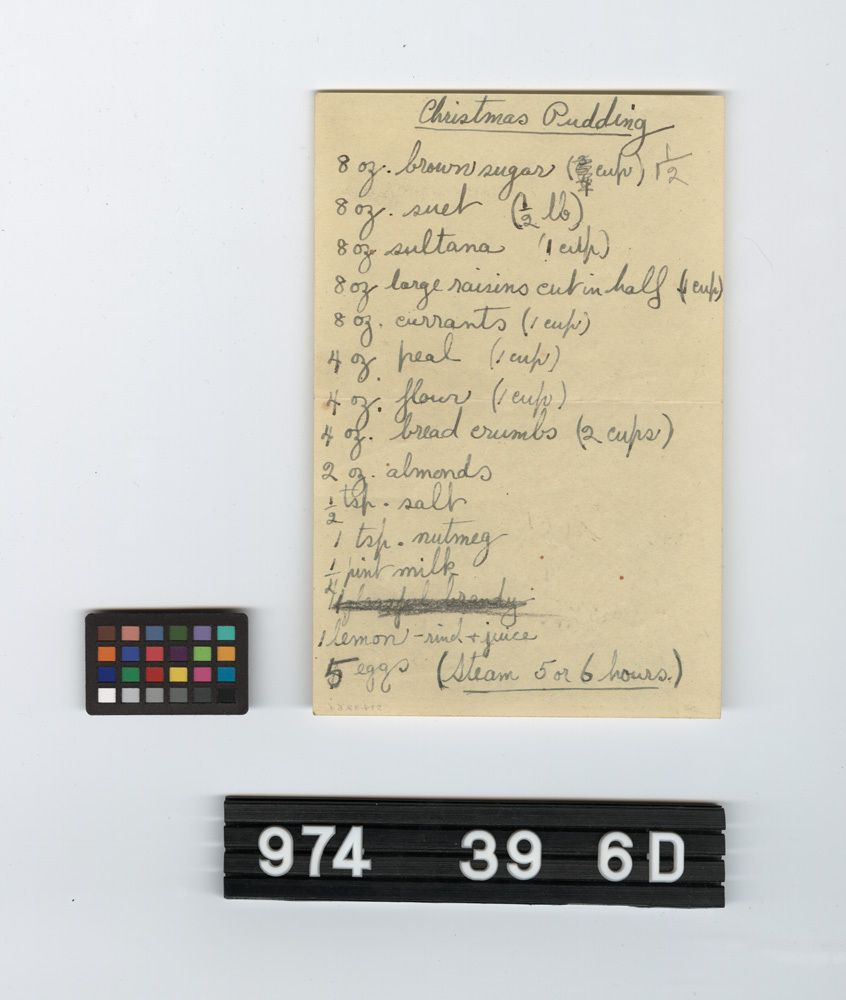 Christmas Pudding
8 oz. brown sugar ( cup) 1 1/2
8 oz. suet (1/2 lb)
8 oz sultana (1 cup)
8 oz large raisins cut in half (1 cup)
8 oz. currants (1 cup)
4 oz. peal (1 cup)
4 oz. flour (1 cup)
4 oz. bread crumbs (2 cups)
2 oz. almonds
1/2 tsp. salt
1 tsp. nutmeg
1/4 pint milk
brandy
1 lemon - rind + juice
5 eggs (Steam 5 or 6 hours.)
974 39 6D